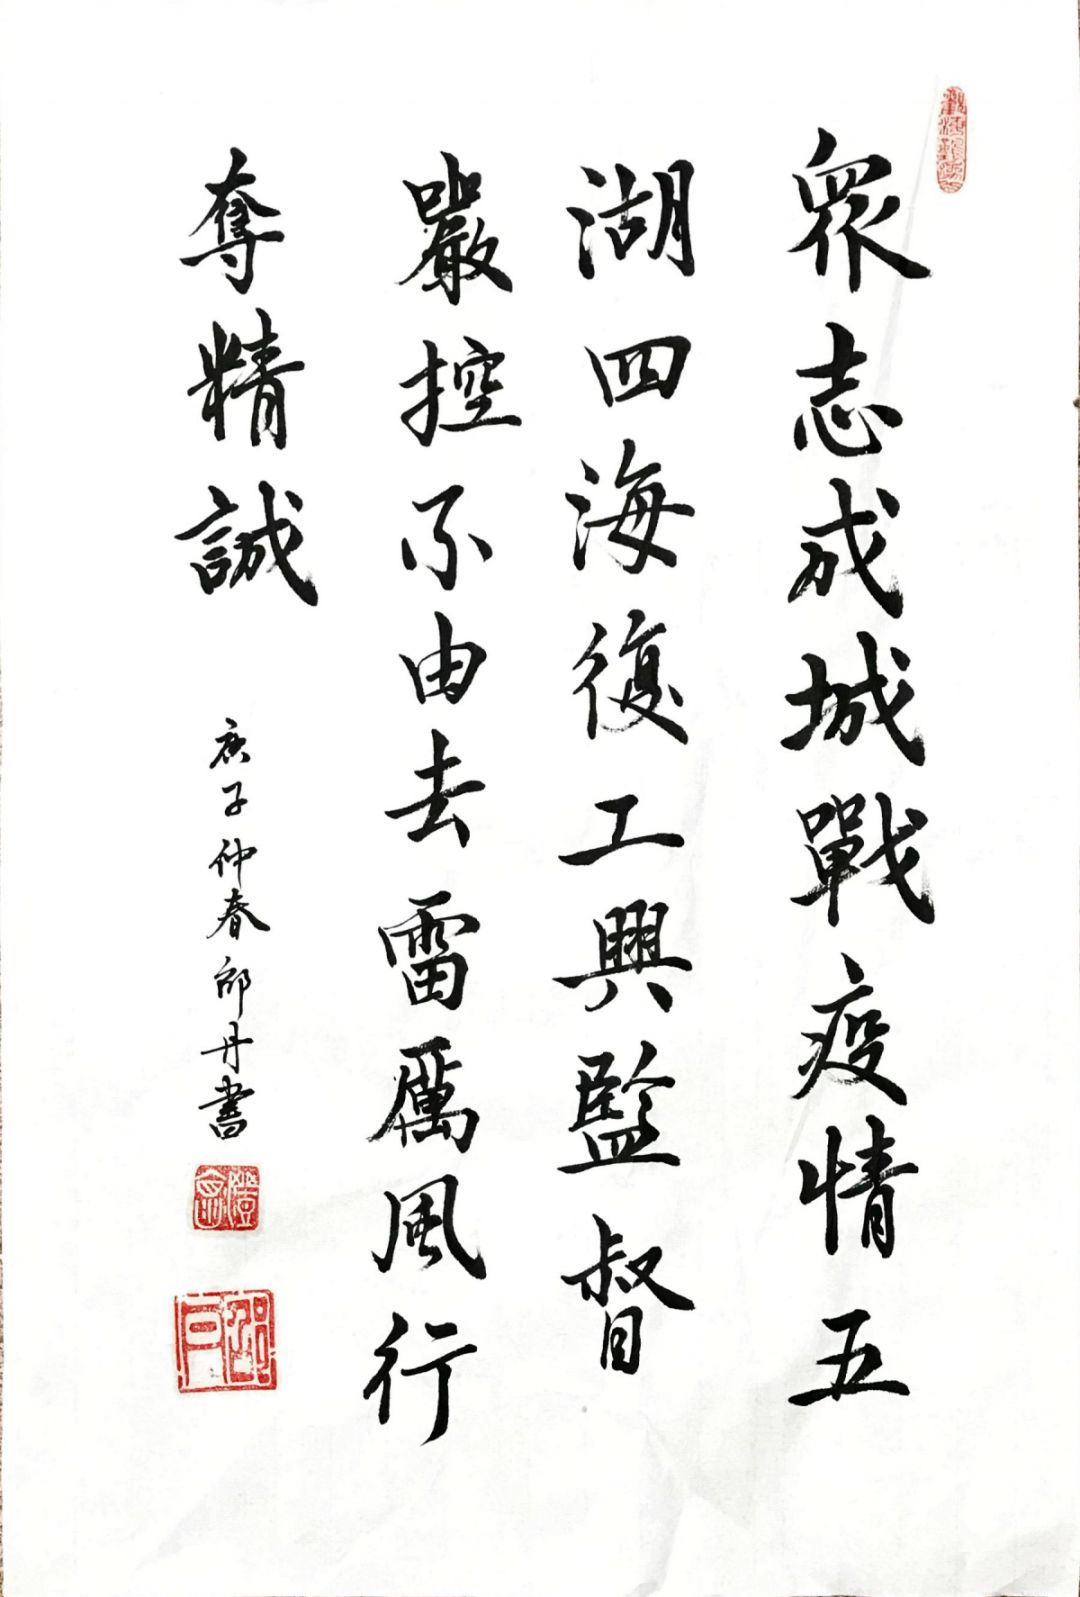 眾志成城戰疫情五
湖四海復工興監督
嚴控不由去雷厲風行
奪精誠
庚子仲春邵丹書
邵丹